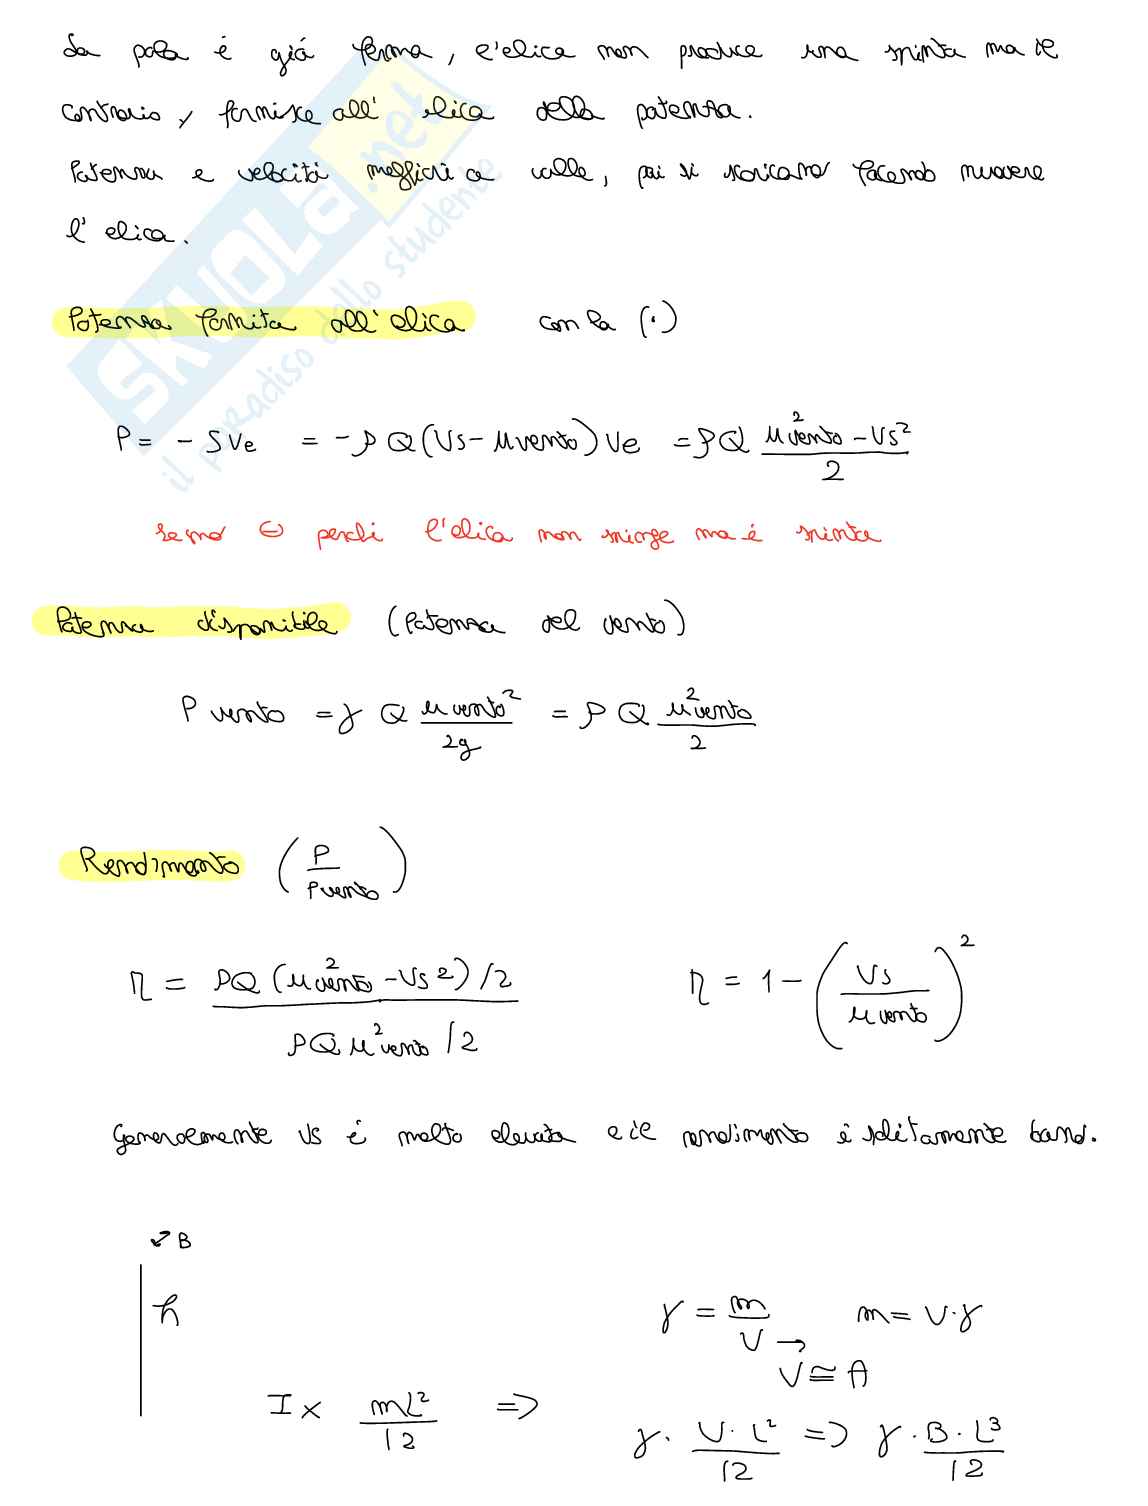 La pala è già ferma, l'elica non produce una spinta ma il
contrario, fornisce all' elica della potenza.
Potenza e velocità maggiori a valle, poi si scaricano facendo muovere
l' elica.
Potenza fornita all'elica con la (·)
P = - S Ve = - ρ Q (Vs - u vento) Ve = ρ Q (u²vento - Vs²) / 2
segno ⊖ perchè l'elica non spinge ma è spinta
Potenza disponibile (Potenza del vento)
P vento = γ Q u vento² / 2g = ρ Q u²vento / 2
Rendimento (P / P vento)
η = ρQ (u²vento - Vs²)/2 / ρQ u²vento /2 η = 1 - (Vs / u vento)²
Generalmente Vs è molto elevata e il rendimento è solitamente basso.
↙ B
h
γ = m / V → m = V · γ
V ≅ A
Ix mL² / 12 ⇒
γ · V · L² / 12 ⇒ γ · B · L³ / 12
SKUOLA.net
il paradiso dello studente